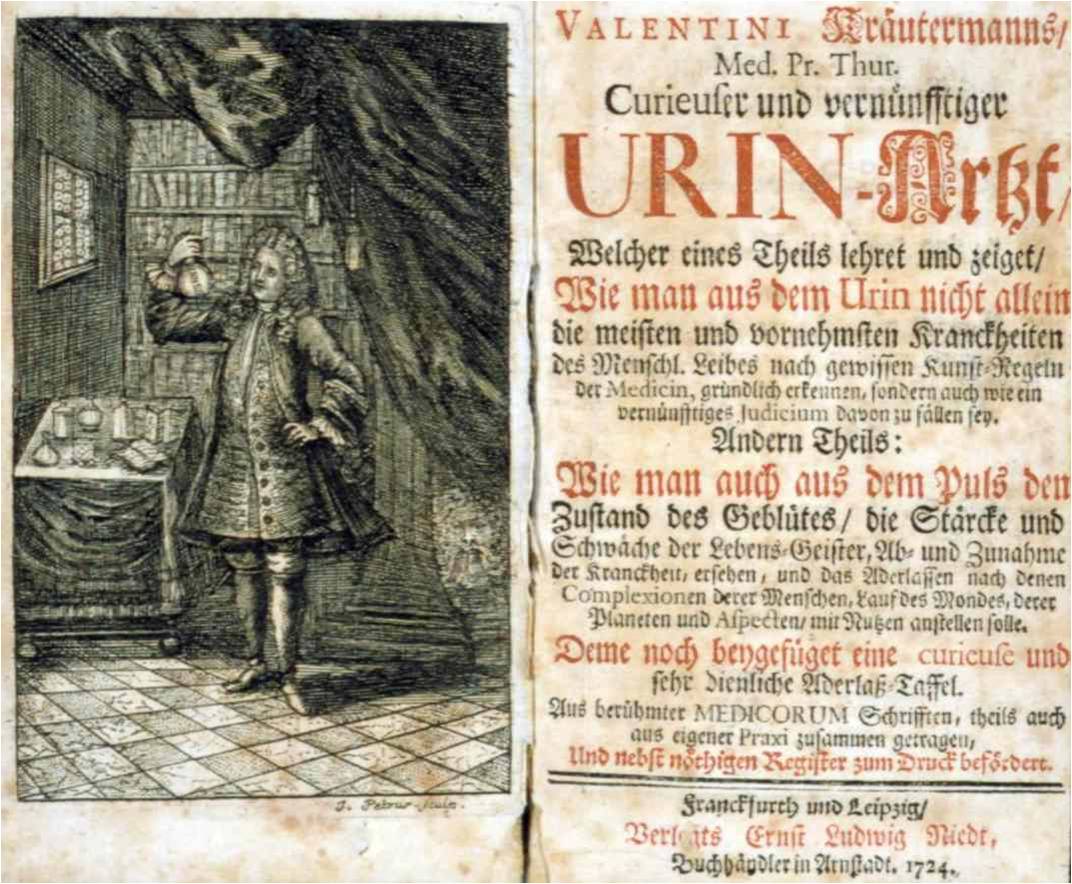 J. Petrus sculp.
VALENTINI Kräutermanns/
Med. Pr. Thur.
Curieuser und vernünfftiger
URIN-Artzt/
Welcher eines Theils lehret und zeiget/
Wie man aus dem Urin nicht allein
die meisten und vornehmsten Kranckheiten
des Menschl. Leibes nach gewissen Kunst-Regeln
der Medicin, gründlich erkennen, sondern auch wie ein
vernünfftiges Judicium davon zu fällen sey.
Andern Theils:
Wie man auch aus dem Puls den
Zustand des Geblütes/ die Stärcke und
Schwäche der Lebens-Geister, Ab- und Zunahme
der Kranckheit, ersehen, und das Aderlassen nach denen
Complexionen derer Menschen, Lauf des Mondes, derer
Planeten und Aspecten/ mit Nutzen anstellen solle.
Deme noch beygefüget eine curieuse und
sehr dienliche Aderlaß-Taffel.
Aus berühmter MEDICORUM Schrifften, theils auch
aus eigener Praxi zusammen getragen,
Und nebst nöthigen Register zum Druck befördert.
Franckfurth und Leipzig/
Verlegts Ernst Ludwig Niedt,
Buchhändler in Arnstadt. 1724.